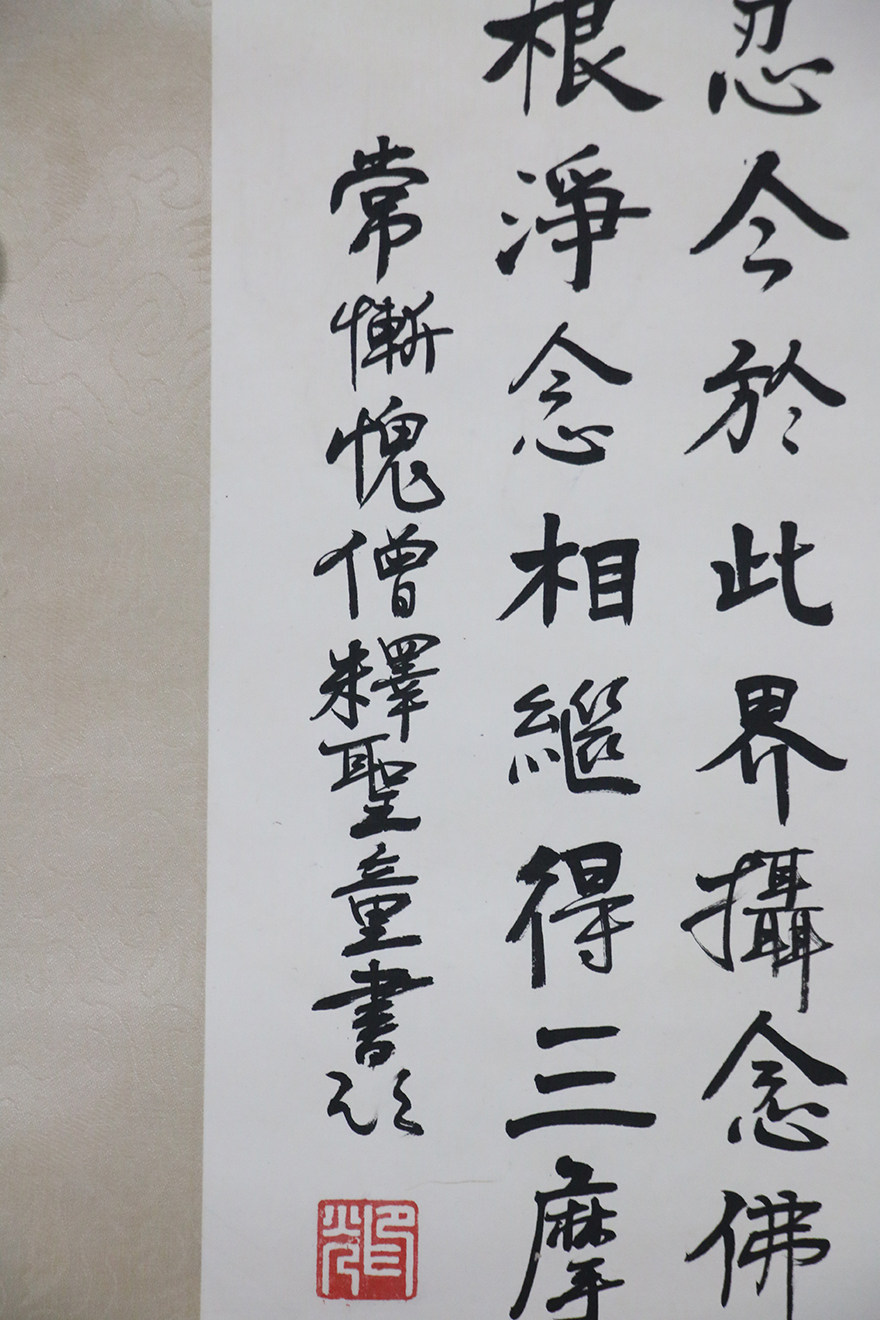 忍今於此界攝念佛
根淨念相繼得三摩
常慚愧僧釋聖量書
印光